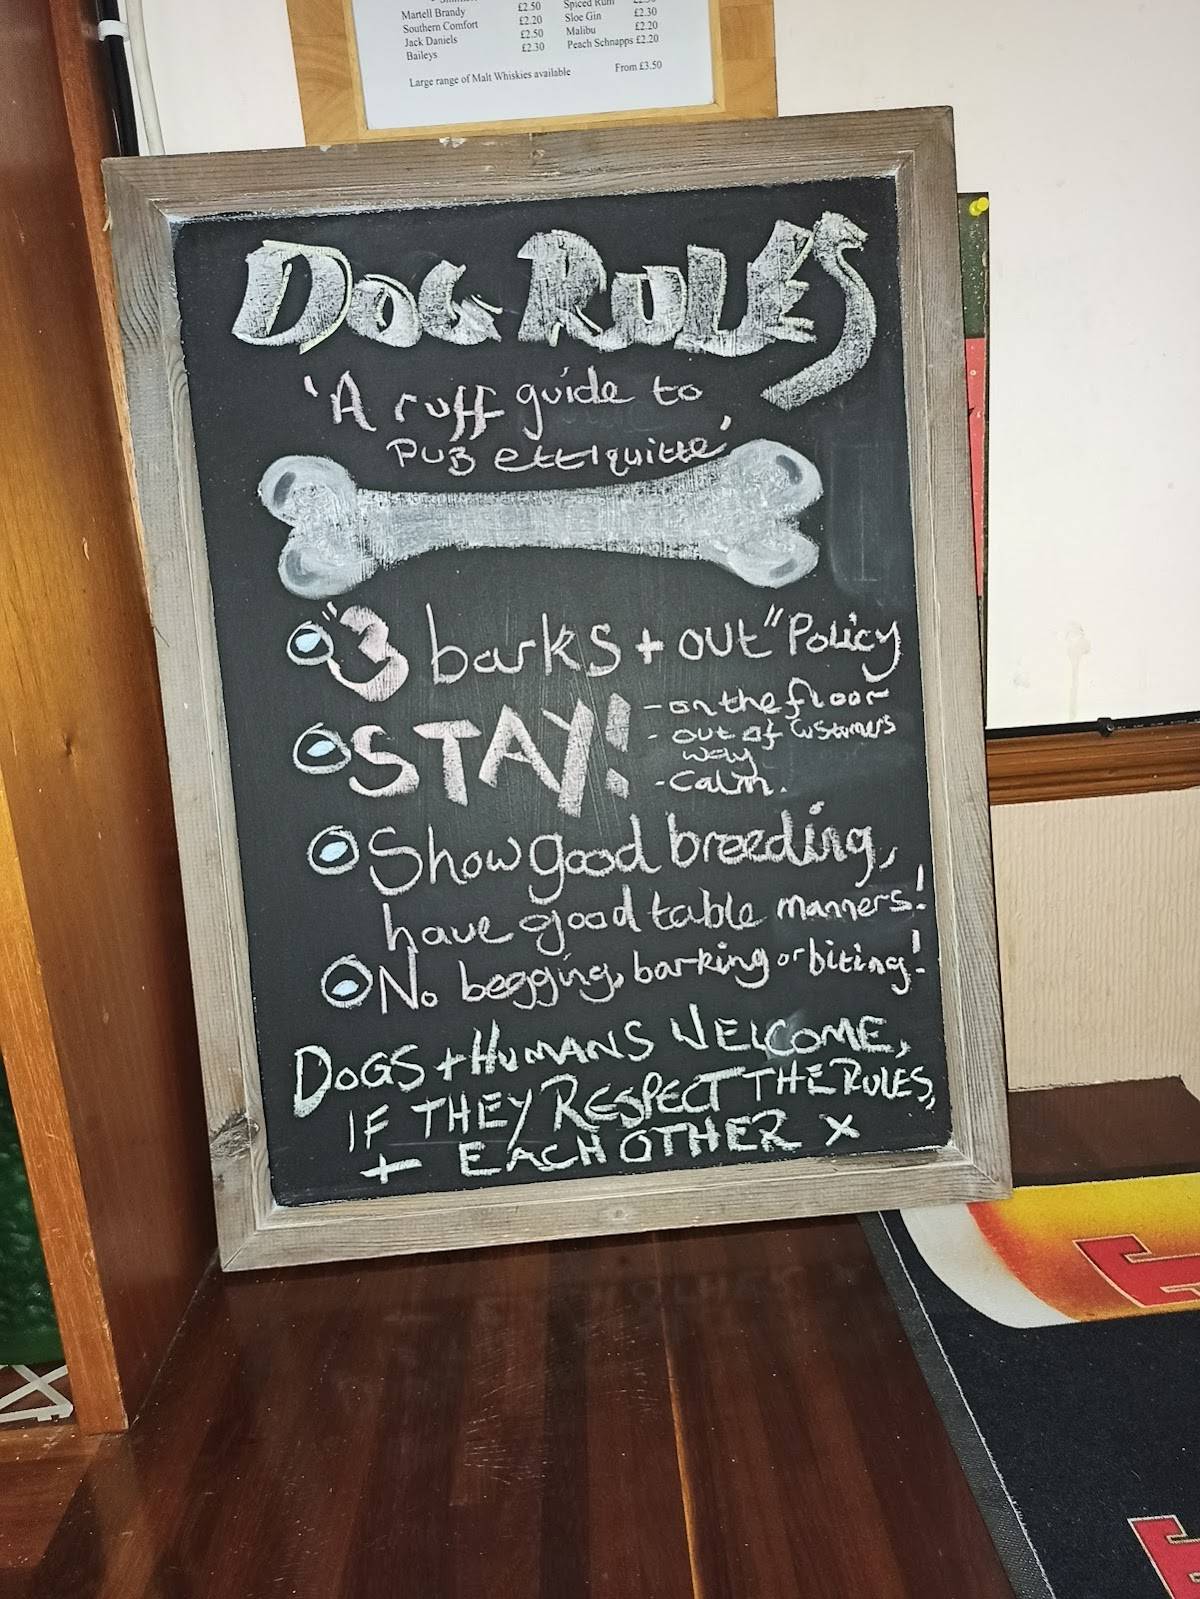 Martell Brandy £2.50 Spiced Rum
Southern Comfort £2.20 Sloe Gin £2.30
Jack Daniels £2.50 Malibu £2.20
Baileys £2.30 Peach Schnapps £2.20
Large range of Malt Whiskies available From £3.50
DOG RULES
'A ruff guide to
PUB ettiquitte'
"3 barks + out" Policy
STAY! - on the floor
- out of customers
way
- Calm.
Show good breeding,
have good table manners!
No begging, barking or biting!
DOGS + HUMANS WELCOME,
IF THEY RESPECT THE RULES,
+ EACH OTHER x